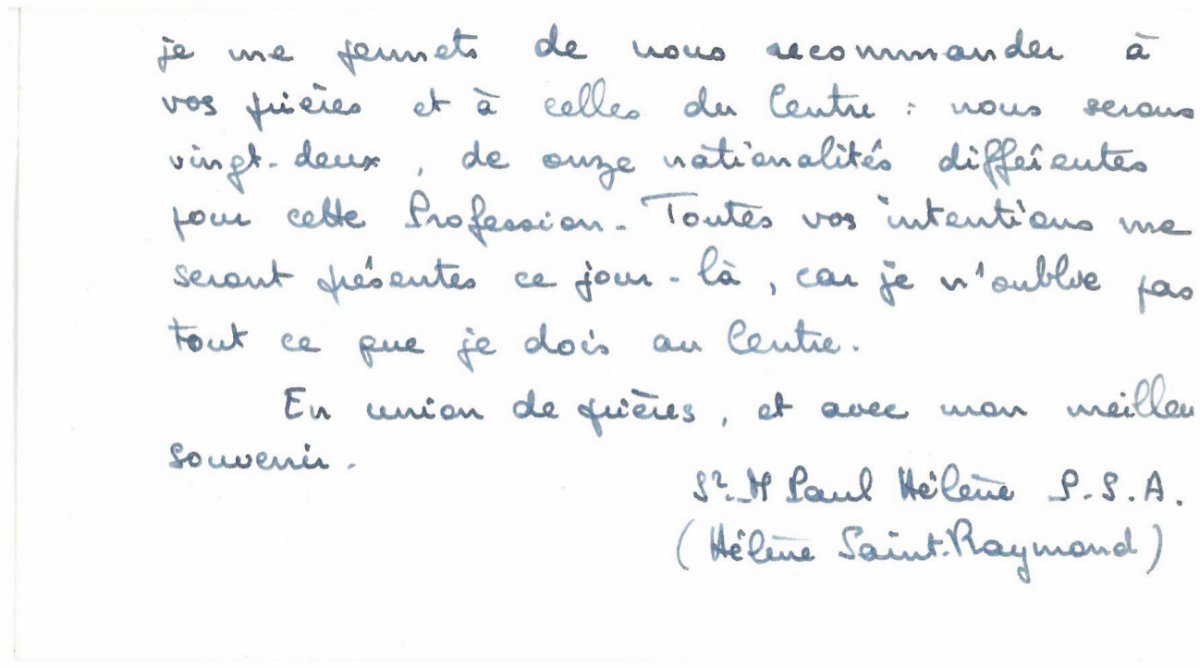 je me permets de nous recommander à
vos prières et à celles du Centre : nous serons
vingt-deux, de onze nationalités différentes
pour cette Profession. Toutes vos intentions me
seront présentes ce jour-là, car je n'oublie pas
tout ce que je dois au Centre.
En union de prières, et avec mon meilleu
souvenir.
Sr. M Paul Hélène P.S.A.
(Hélène Saint-Raymond)